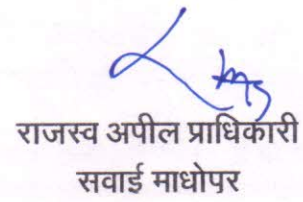 राजस्व अपील प्राधिकारी
सवाई माधोपर